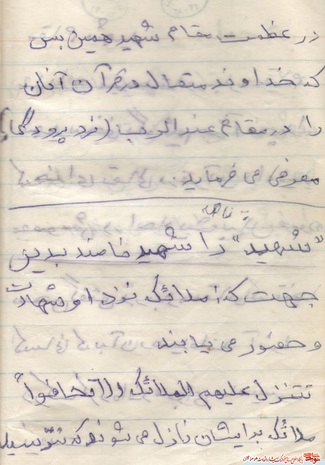 در عظمت مقام شهید همین بس
که خداوند متعال در قرآن آنان
را در مقام عند الرب (نزد پروردگار)
معرفی می فرماید
"شهید" را شهید نامند بدین
جهت که ملائک نزد او شهادت
و حضور می یابند
تتنزل علیهم الملائکه الا تخافوا
ملائک برایشان نازل می شوند که نترسید